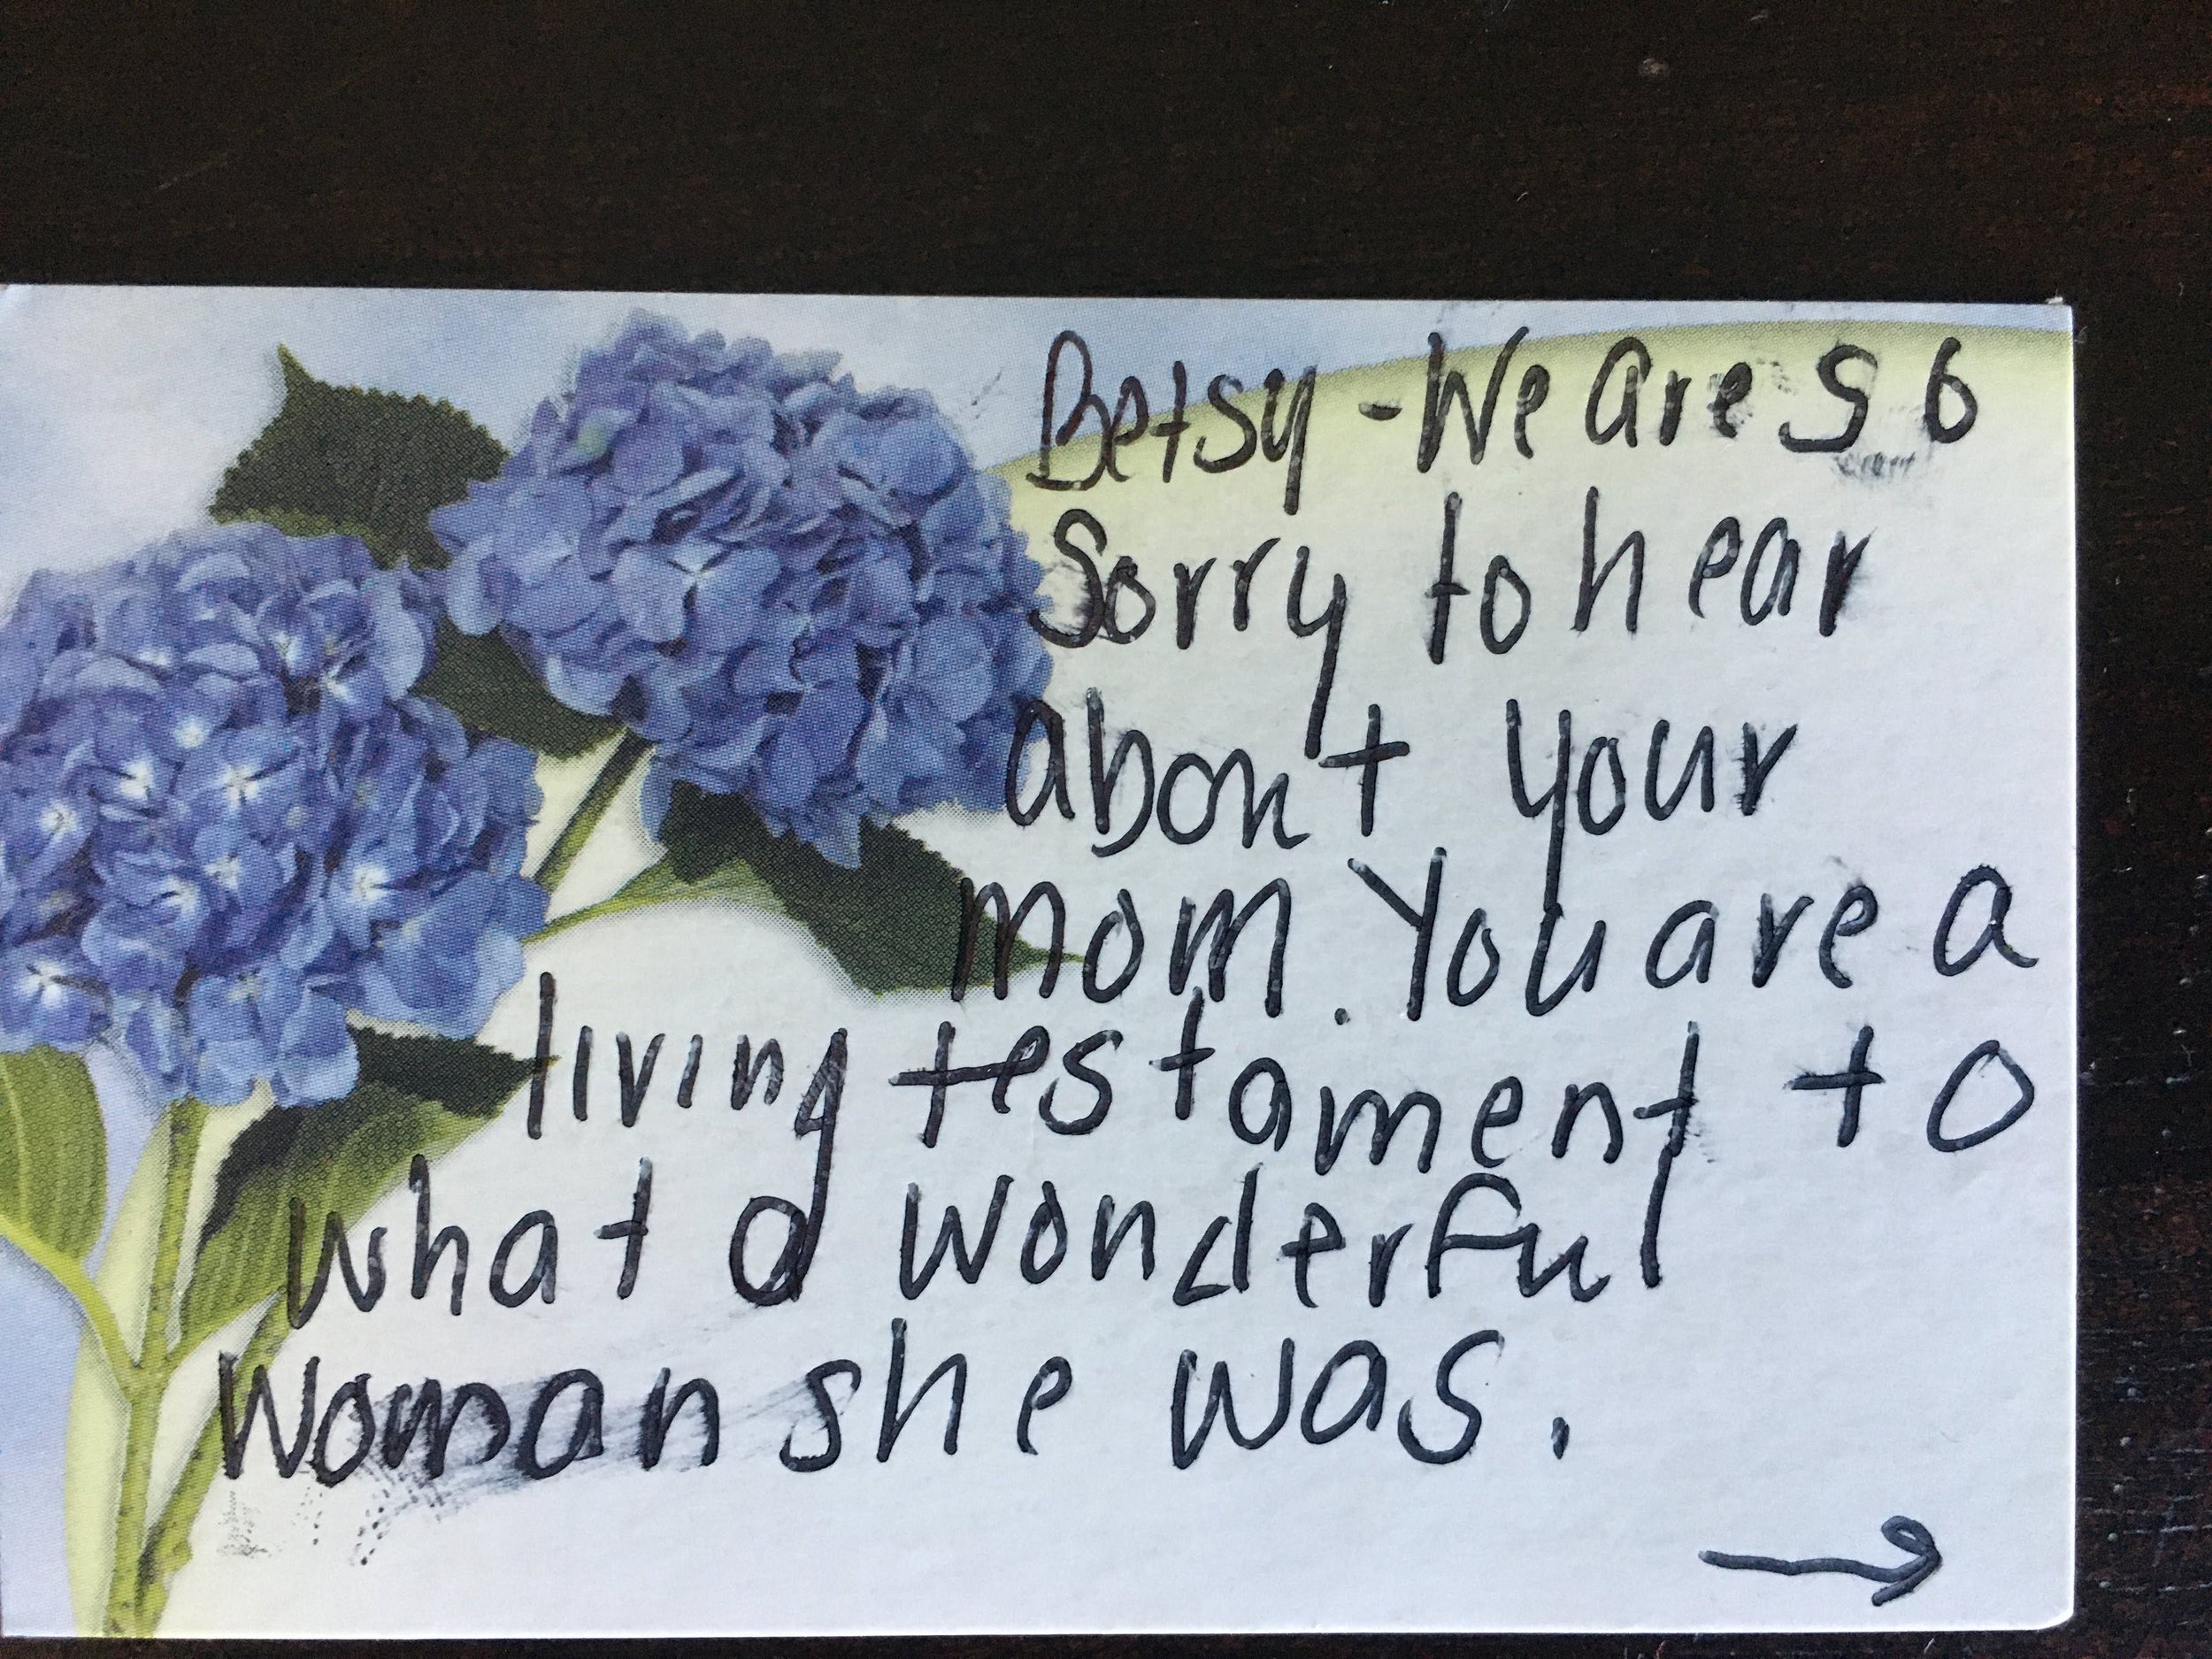 Betsy - We are so
sorry to hear
about your
mom. You are a
living testament to
what a wonderful
woman she was.
→